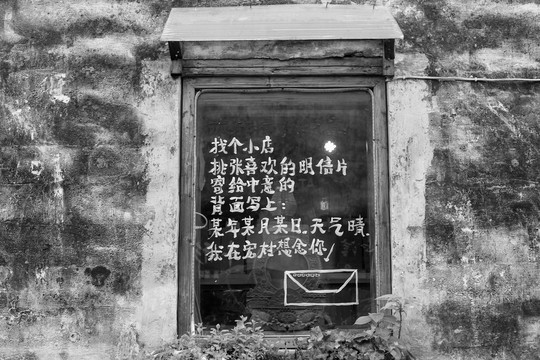 找个小店
挑张喜欢的明信片
寄给中意的
背面写上：
某年某月某日。天气晴。
我在宏村想念你！